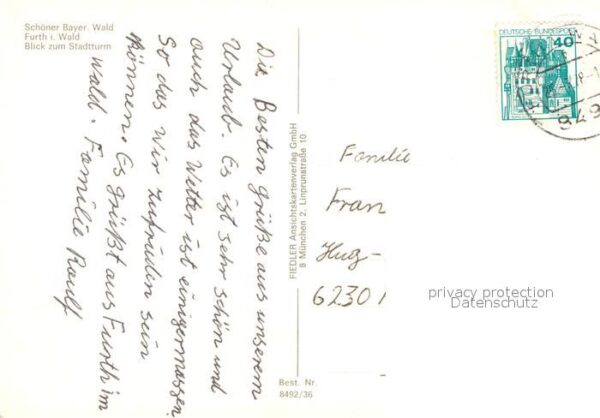 Schöner Bayer. Wald
Furth i. Wald
Blick zum Stadtturm
Die Besten grüße aus unserem
Urlaub. Es ist sehr schön und
auch das Wetter ist einigermassen
So das wir zufrieden sein
können. Es grüßt aus Furth im
Wald. Familie Raulf
FIEDLER Ansichtskartenverlag GmbH
8 München 2, Linprunstraße 10
Best. Nr.
8492/36
DEUTSCHE BUNDESPOST
40
849
Familie
Fran
Hug-
6230 1
privacy protection
Datenschutz